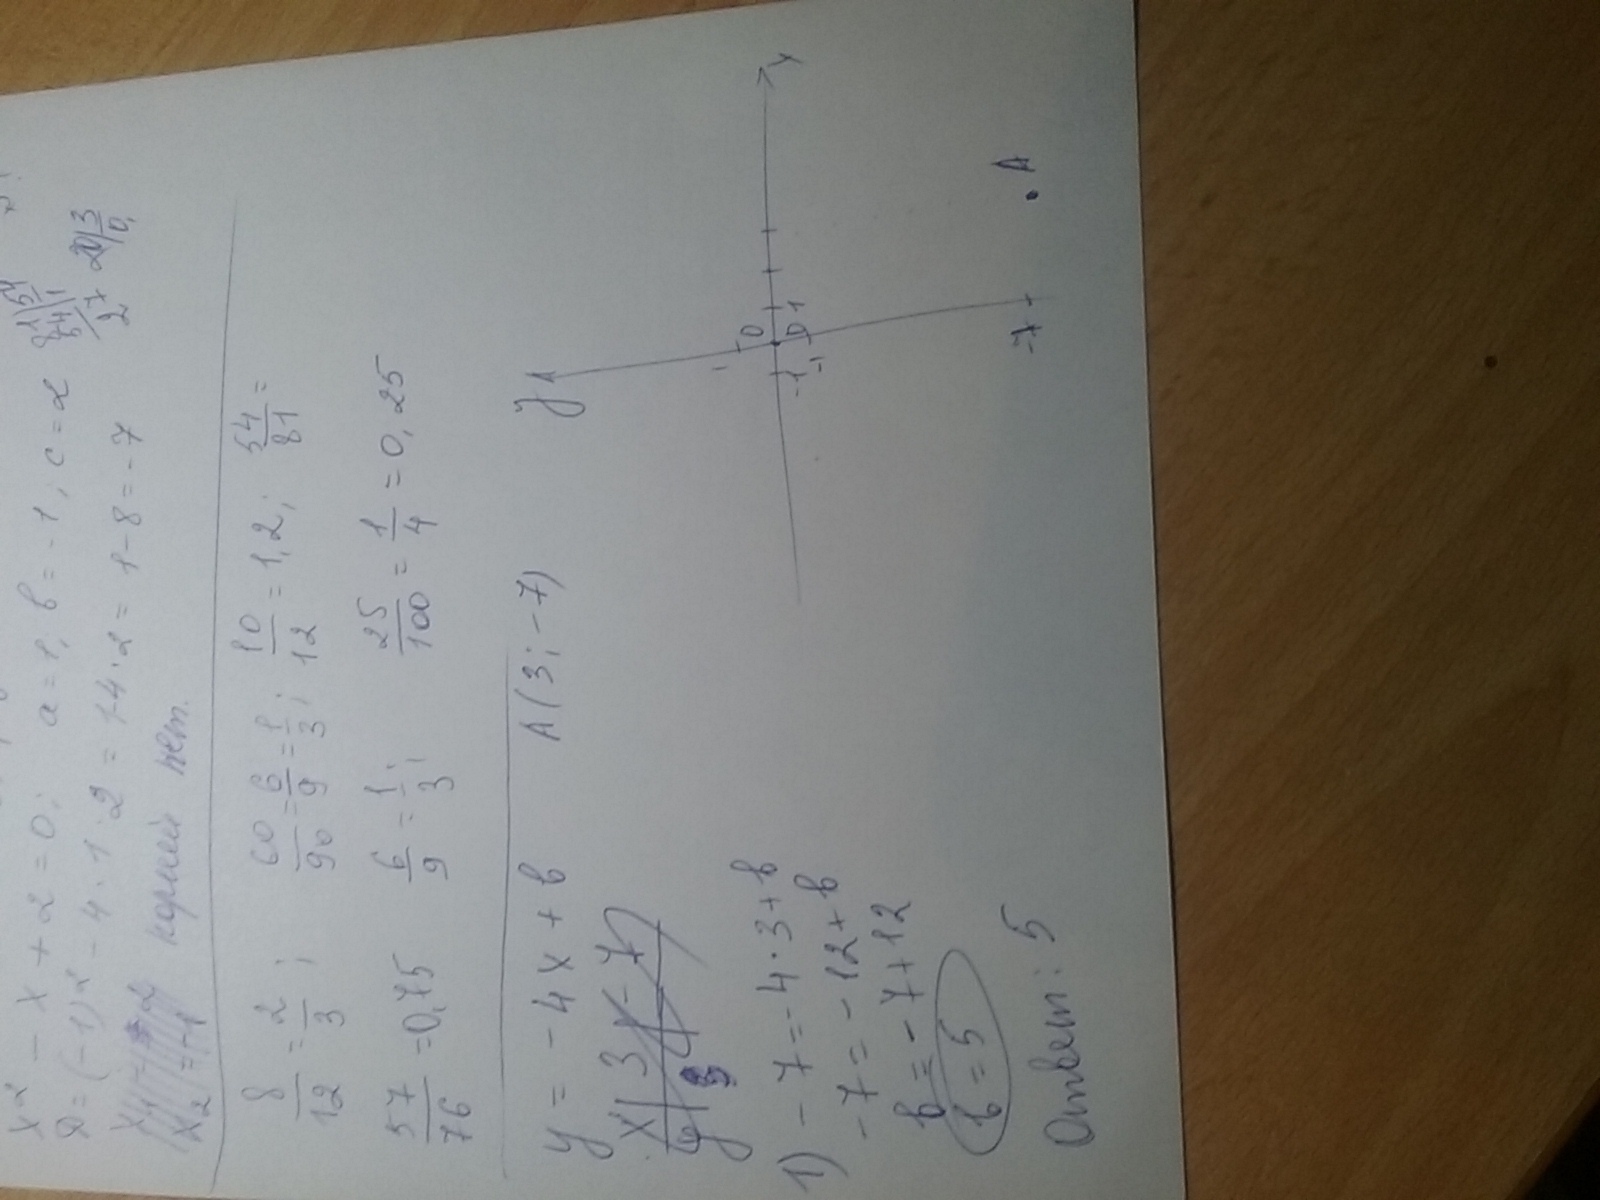 x² - x + 2 = 0; a = 1, b = -1, c = 2
D = (-1)² - 4 · 1 · 2 = 1-4·2 = 1-8 = -7
корней нет.
8/12 = 2/3; 60/90 = 6/9 = 1/3; 10/12 = 1,2; 54/81 =
57/76 = 0,75 6/9 = 1/3; 25/100 = 1/4 = 0,25
y = -4x + b A(3; -7)
x 3 -7
y
1) -7 = -4 · 3 + b
-7 = -12 + b
b = -7 + 12
b = 5
Ответ: 5
y
0
1
-1
-7
A